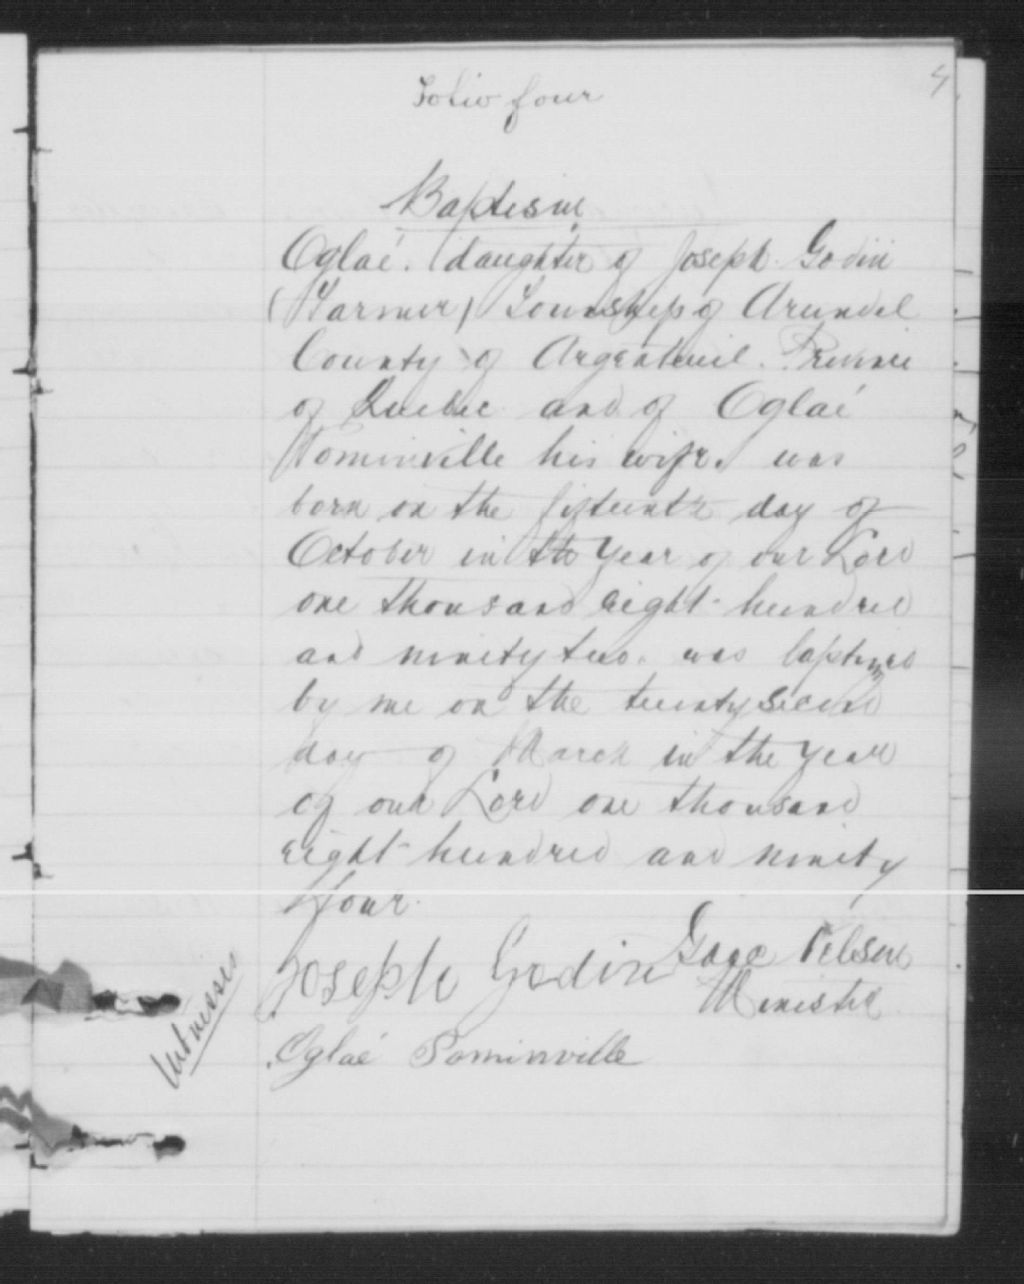 4
Folio four
Baptism
Oglaé. daughter of Joseph Godin
(Farmer) Township of Arundel
County of Argenteuil. Province
of Quebec and of Oglaé
Pominville his wife. was
born on the fifteenth day of
October in the year of our Lord
one thousand eight hundred
and ninety two. was baptized
by me on the twenty second
day of March in the year
of our Lord one thousand
eight hundred and ninety
four.
Joseph Godin
Minister
Oglaé Pominville
Witnesses